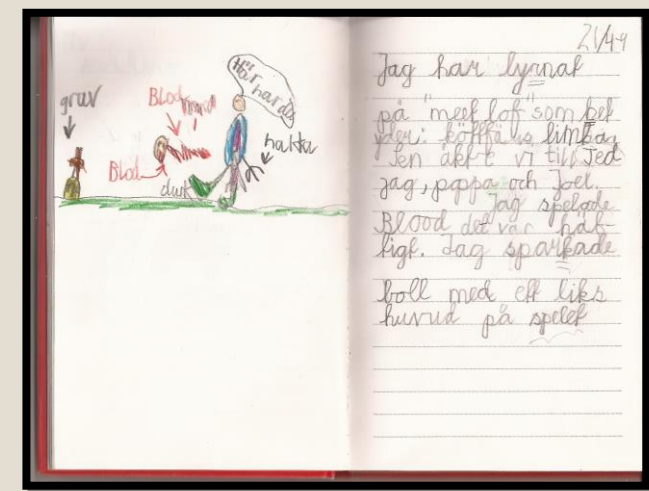 grav
Blod
Blod
dunk
Här
har du
hakka
21/4-9
Jag har lyrnat
på "meet lof" som bet
yder: köttfärs limban
Sen åkt vi till Jed
jag, pappa och Joel.
Jag spelade
Blood det var häf-
tigt. Jag sparkade
boll med ett liks
huvud på spelet